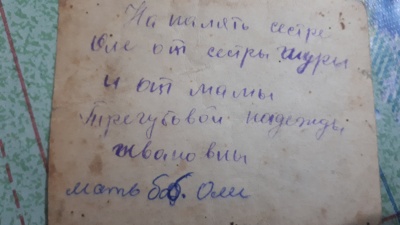 На память сестре
Юле от сестры Шуры
и от мамы
Трегубовой надежды
ивановны
мать баб. Оли